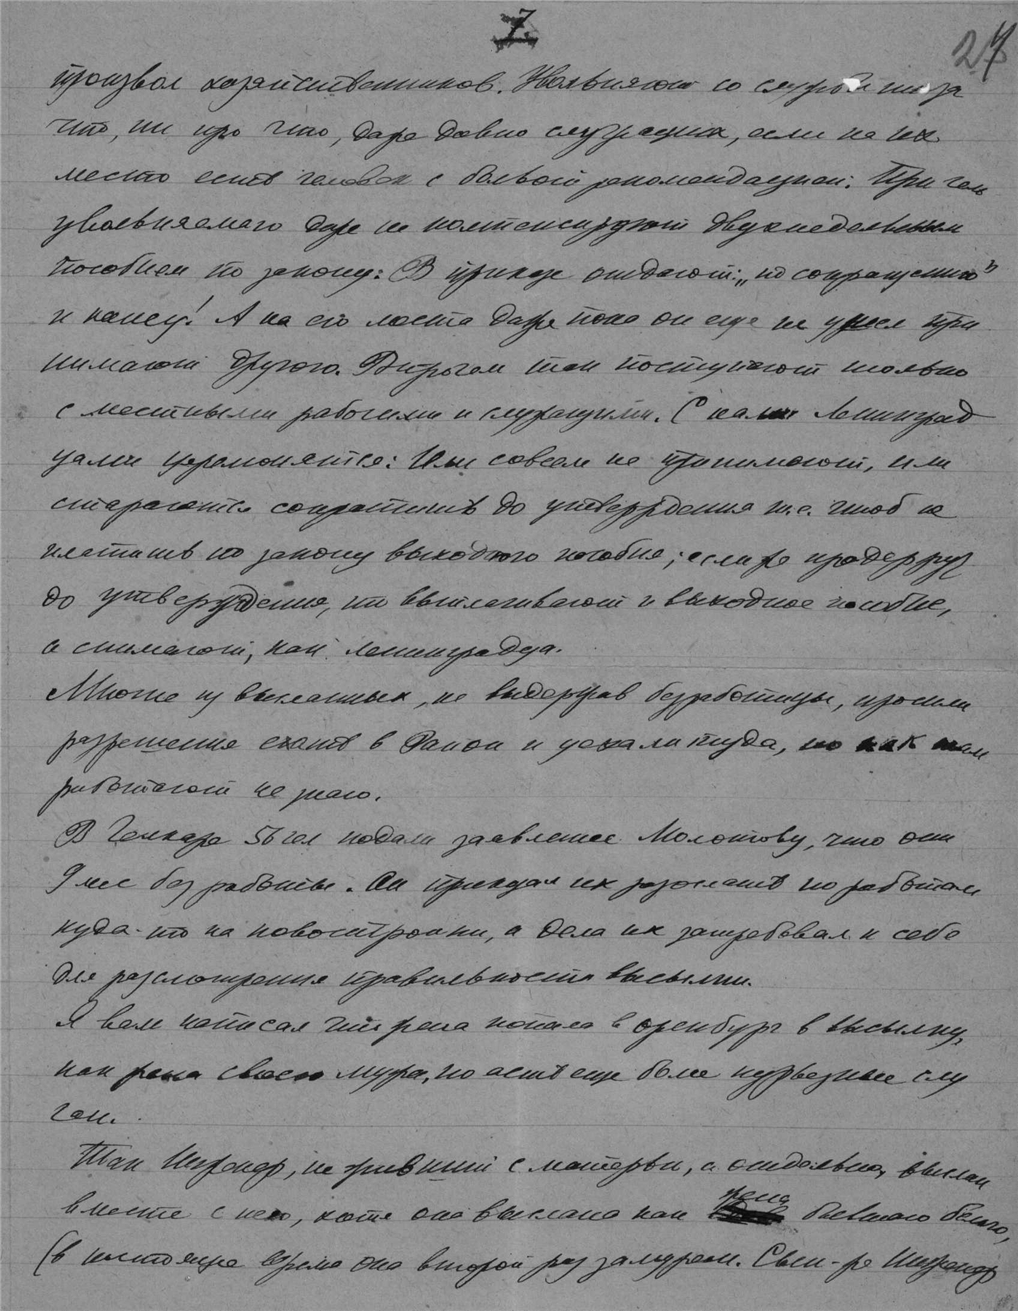 7.
24
произвол хозяйственников. Увольняют со службы ни за
что, ни про что, даже давно служащих, если на их
место есть человек с большой рекомендацией. При чем
увольняемого даже не компенсируют двухнедельным
пособием по закону: В приказе отдают: „по сокращению"
и канец! А на его место даже пока он еще не ушел при
нимают другого. Впрочем так поступают только
с местными рабочими и служащими. С нами Ленинград
цами церемонятся: Или совсем не принимают, или
стараются сократить до утверждения т.е. чтоб не
платить по закону выходного пособия; если же продержуц
до утверждения, то выплачивают и выходное пособие,
а снимают, как ленинградца.
Многие из высланных, не выдержав безработицы, просили
разрешение ехать в Район и уехали туда, но как там
работают не знаю.
В Челкаре 56 чел подали заявление Молотову, что они
9 мес без работы. Он приказал их разослать по работам
куда-то на новостройки, а дела их затребовал к себе
для разсмотрения правильности высылки.
Я вам написал что жена попала в Оренбург в высылку,
как жена своего мужа, но есть еще более курьезные слу
чаи.
Так инженер, не живший с матерью, а отдельно, выслан
вместе с нею, хотя она выслана как жена бывшего белого,
(в настоящее время она второй раз замужем. Сын-же инженер